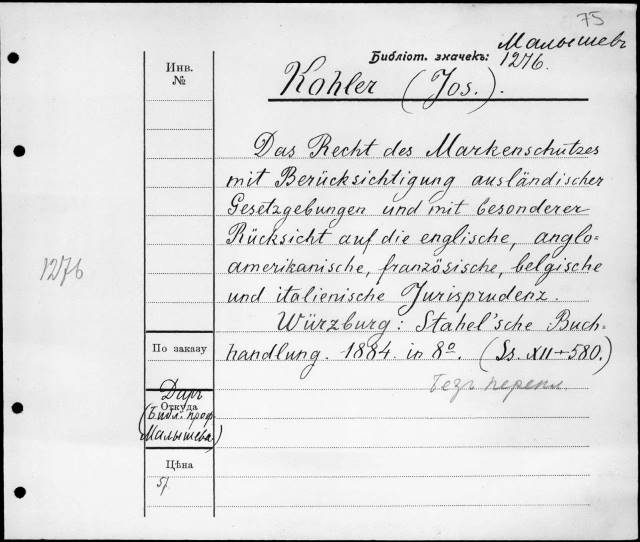 75
Малышевъ
Библіот. значекъ: 1276.
Инв.
№
Kohler (Jos.).
Das Recht des Markenschutzes
mit Berücksichtigung ausländischer
Gesetzgebungen und mit besonderer
Rücksicht auf die englische, anglo-
1276
amerikanische, französische, belgische
und italienische Jurisprudenz.
Würzburg: Stahel'sche Buch-
По заказу
handlung. 1884. in 8º. (Ss. XII+580.)
безъ перепл.
Даръ
Откуда
(Библ. проф.
Малышева)
Цѣна